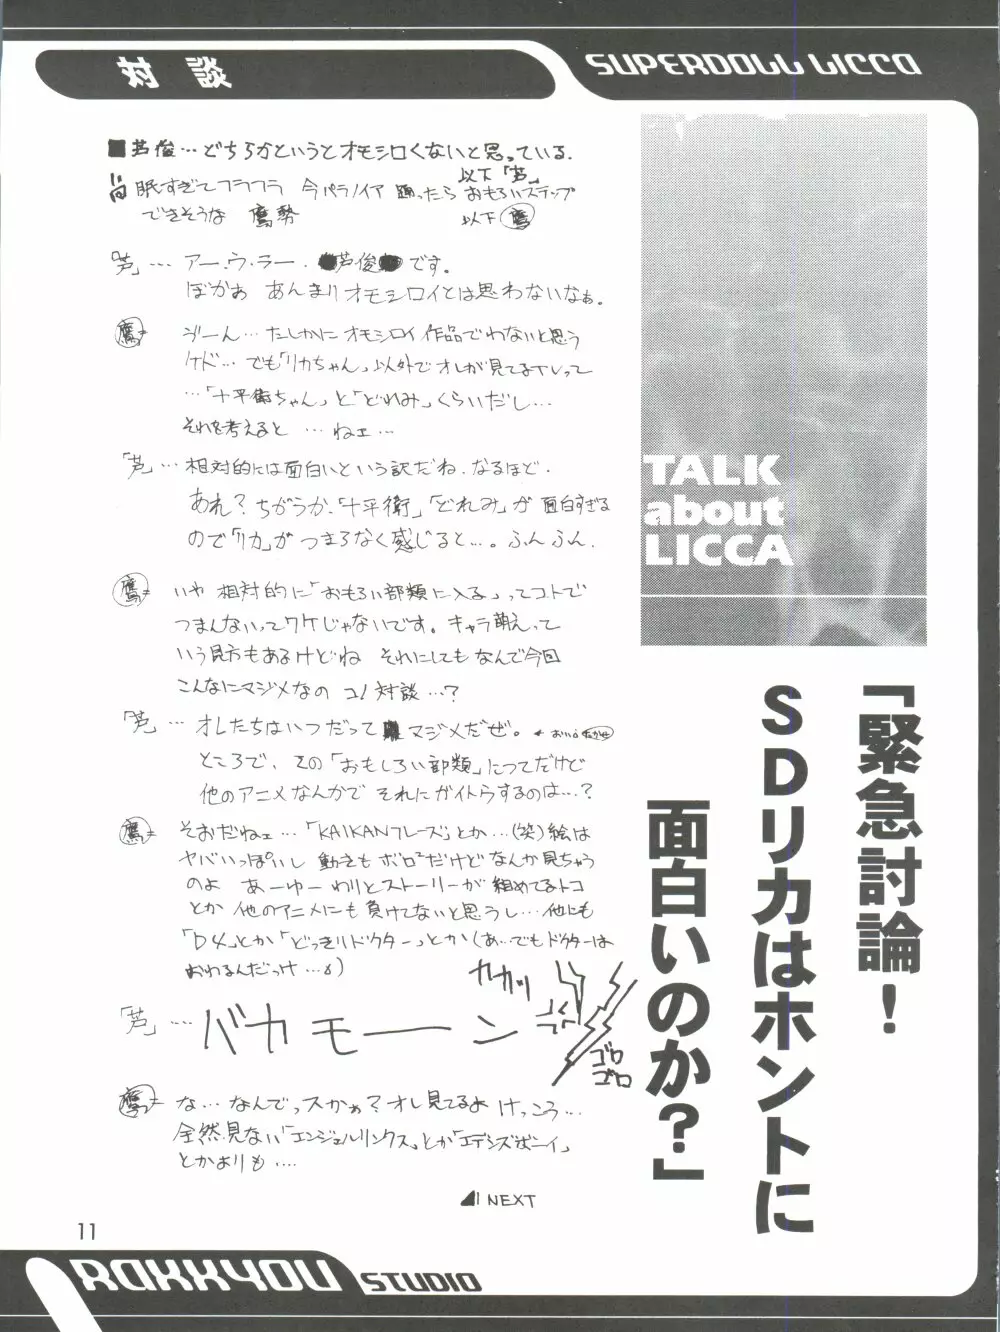 対談
SUPERDOLL LICCA
■芦俊…どちらかというとオモシロくないと思っている.
以下「芦」
眠すぎてフラフラ 今パラノイア 踊ったら おもろいステップ
できそうな 鷹勢 以下 鷹
「芦」… アー.ウ.ラー. 芦俊 です。
ぼかぁ あんまりオモシロイとは思わないなぁ。
鷹= ゔーん…たしかに オモシロイ作品でわないと思う
ケド… でも「リカちゃん」以外でオレが見てるTVって
…「十平衛ちゃん」と「どれみ」くらいだし…
それを考えると …ねェ…
「芦」… 相対的には面白いという訳だね.なるほど.
あれ? ちがうか.「十平衛」「どれみ」が 面白すぎる
ので「リカ」が つまらなく感じると…。ふんふん.
鷹= いや 相対的に「おもろい部類に入る」ってコトで
つまんないってワケじゃないです。キャラ萌えって
いう見方もあるけどね それにしても なんで今回
こんなにマジメなの コノ対談…?
「芦」… オレたちはいつだって マジメだぜ。
ところで、その「おもしろい部類」についてだけど
他のアニメなんかで それにガイトウするのは…?
鷹= そおだねェ…「KAIKANフレーズ」とか…(笑)絵は
ヤバいっぽいし 動きも ボロ²だけどなんか見ちゃう
のよ あーゆー わりとストーリーが 組めてるトコ
とか 他のアニメにも負けてないと思うし…他にも
「D4」とか「どっきりドクター」とか(あ…でもドクターは
おわるんだっけ…)
カカッ
「芦」… バカモーーン
ゴロ
ゴロ
鷹= な…なんでっスかぁ? オレ見てるよ けっこう…
全然見ない「エンジェルリンクス」とか「エデンズボーイ」
とかよりも….
NEXT
TALK
about
LICCA
「緊急討論!
SDリカはホントに
面白いのか?」
11
RAKKYOU STUDIO